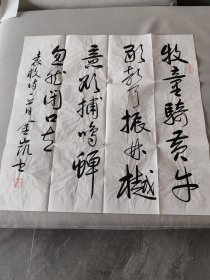 牧童骑黄牛
歌声振林樾
意欲捕鸣蝉
忽然闭口立
袁枚诗一首